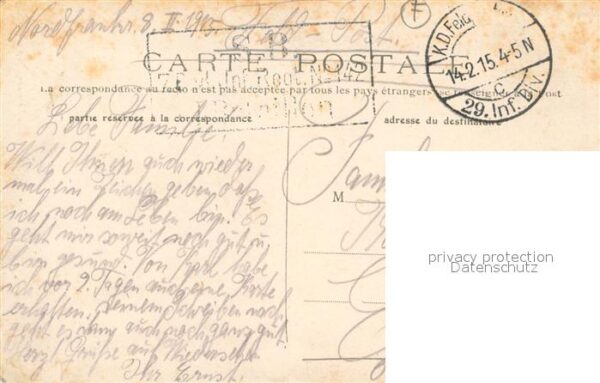 Nordfrankr. 8. II. 1915. Feld-Post.
S. B.
7. Bad. Inf. Regt. No. 142
CARTE POSTALE
K.D. Feld
14.2.15. 4-5 N
c
29. Inf. Div.
La correspondance au recto n'est pas acceptée par tous les pays étrangers se renseigner à la Post
Bataillon
partie reservée à la correspondance
adresse du destinataire
Lebe Familie!
Will Ihnen auch wieder
mal ein Zeichen geben daß
ich noch am Leben bin. Es
geht mir soweit noch gut u.
bin gesund. Von Karl habe
ich vor 2 Tagen auch eine Karte
erhalten. Seinem Schreiben nach
geht es ihm auch noch ganz gut
Herzl. Grüße auf Wiedersehen
Ihr Ernst.
Fam
M
privacy protection
Datenschutz